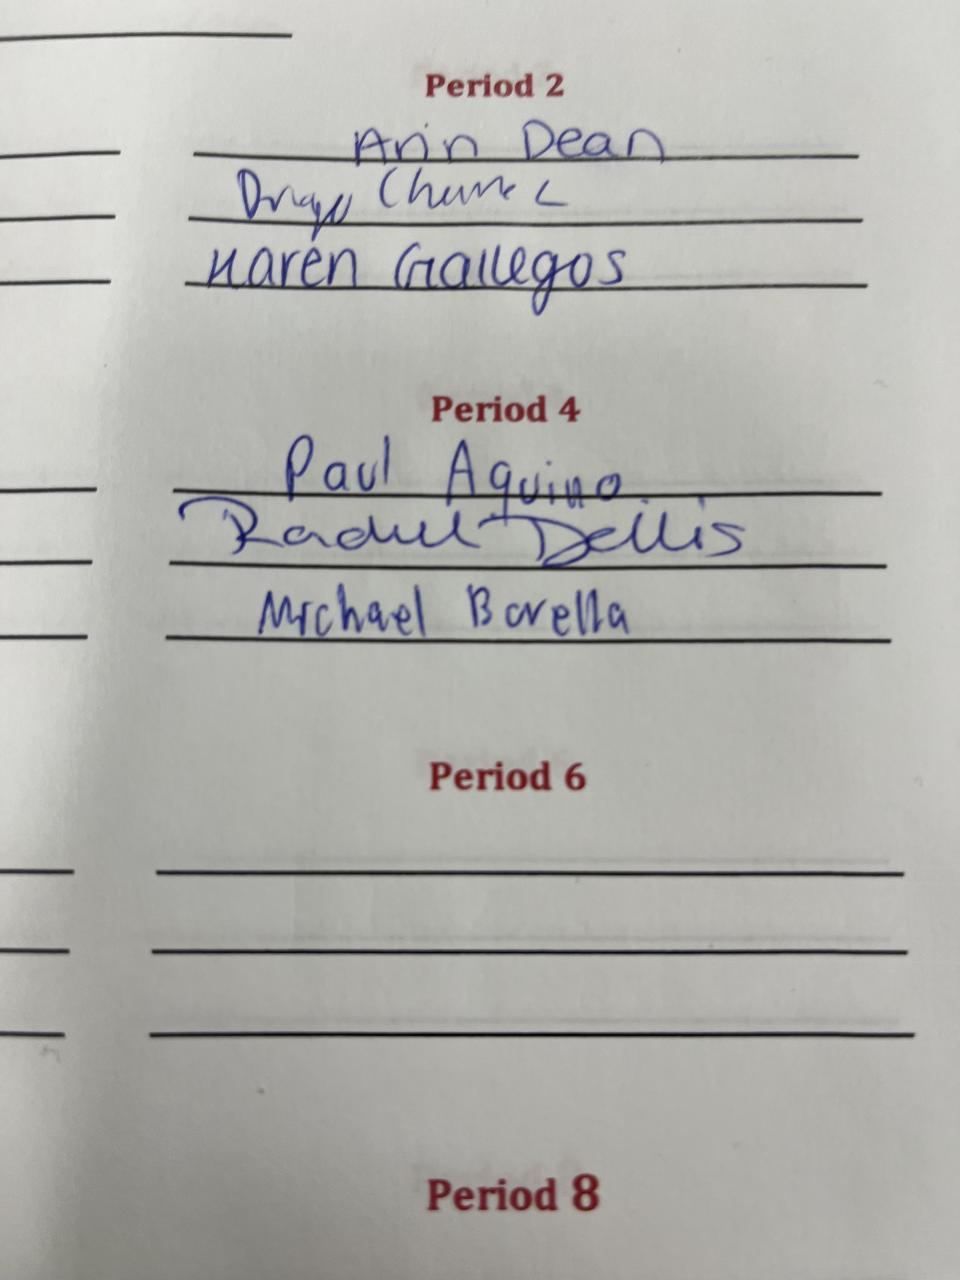 Period 2
Arin Dean
Karen Gallegos
Period 4
Paul Aquino
Rachel Dellis
Michael Borella
Period 6
Period 8